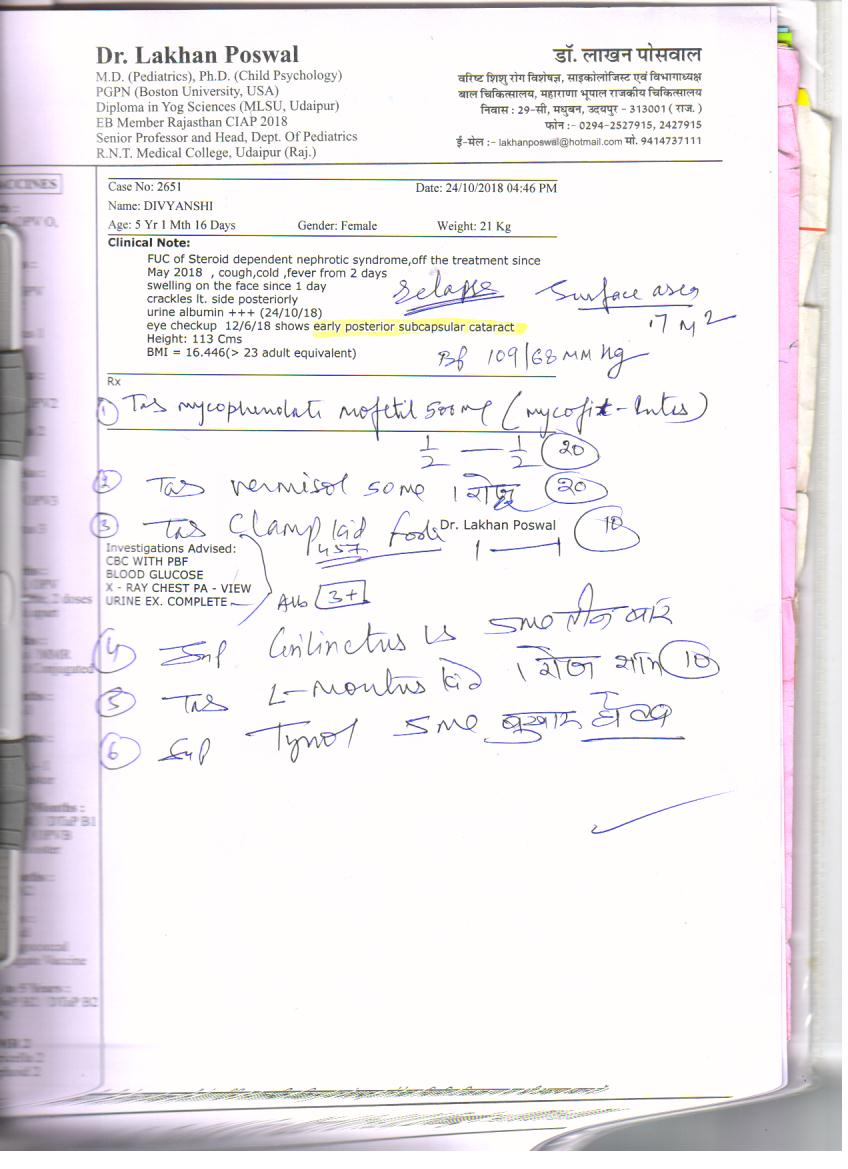 Dr. Lakhan Poswal
M.D. (Pediatrics), Ph.D. (Child Psychology)
PGPN (Boston University, USA)
Diploma in Yog Sciences (MLSU, Udaipur)
EB Member Rajasthan CIAP 2018
Senior Professor and Head, Dept. Of Pediatrics
R.N.T. Medical College, Udaipur (Raj.)
डॉ. लाखन पोसवाल
वरिष्ठ शिशु रोग विशेषज्ञ, साइकोलोजिस्ट एवं विभागाध्यक्ष
बाल चिकित्सालय, महाराणा भूपाल राजकीय चिकित्सालय
निवास : 29-सी, मधुबन, उदयपुर - 313001 ( राज. )
फोन :- 0294-2527915, 2427915
ई-मेल :- lakhanposwal@hotmail.com मो. 9414737111
Case No: 2651 Date: 24/10/2018 04:46 PM
Name: DIVYANSHI
Age: 5 Yr 1 Mth 16 Days Gender: Female Weight: 21 Kg
Clinical Note:
FUC of Steroid dependent nephrotic syndrome,off the treatment since
May 2018 , cough,cold ,fever from 2 days
swelling on the face since 1 day
crackles lt. side posteriorly
urine albumin +++ (24/10/18)
eye checkup 12/6/18 shows early posterior subcapsular cataract
Height: 113 Cms
BMI = 16.446(> 23 adult equivalent)
Relapse
Surface area
.7 M2
BP 109/68 MM Hg
Rx
1 Tab mycophenolate mofetil 500 mg
1/2 — 1/2 20
2 Tab vermisol 50 mg 1 रोज 20
3 Tab Clamp kid forte 1 — 1 10
457
Dr. Lakhan Poswal
Investigations Advised:
CBC WITH PBF
BLOOD GLUCOSE
X - RAY CHEST PA - VIEW
URINE EX. COMPLETE
Alb 3+
4 Syp 5ml तीन बार
5 Tab L-montus kid 1 रोज शाम 10
6 Syp Tynol 5ml बुखार